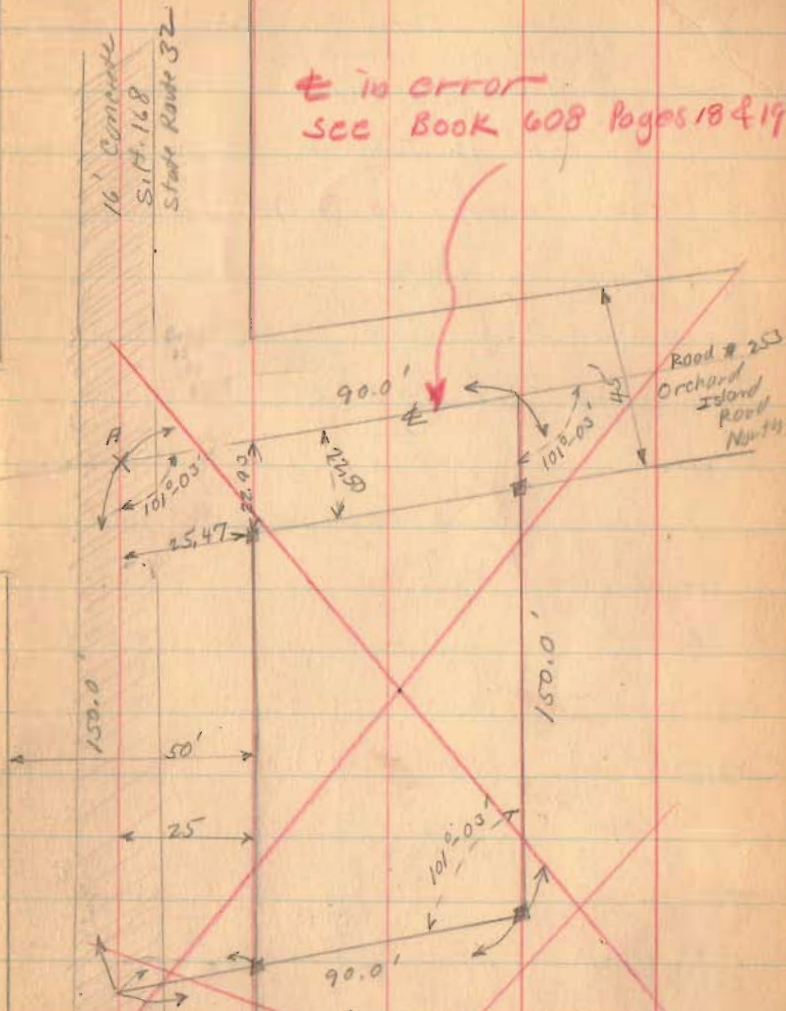 16' Concrete
S.H. 168
State Route 32
℄ in error
see Book 608 Pages 18 & 19
90.0'
℄
45'
Road # 253
Orchard
Island
Road
North
A
101°-03'
22.93
22.50
101°-03'
25.47
150.0'
150.0'
50'
25
101°-03'
90.0'